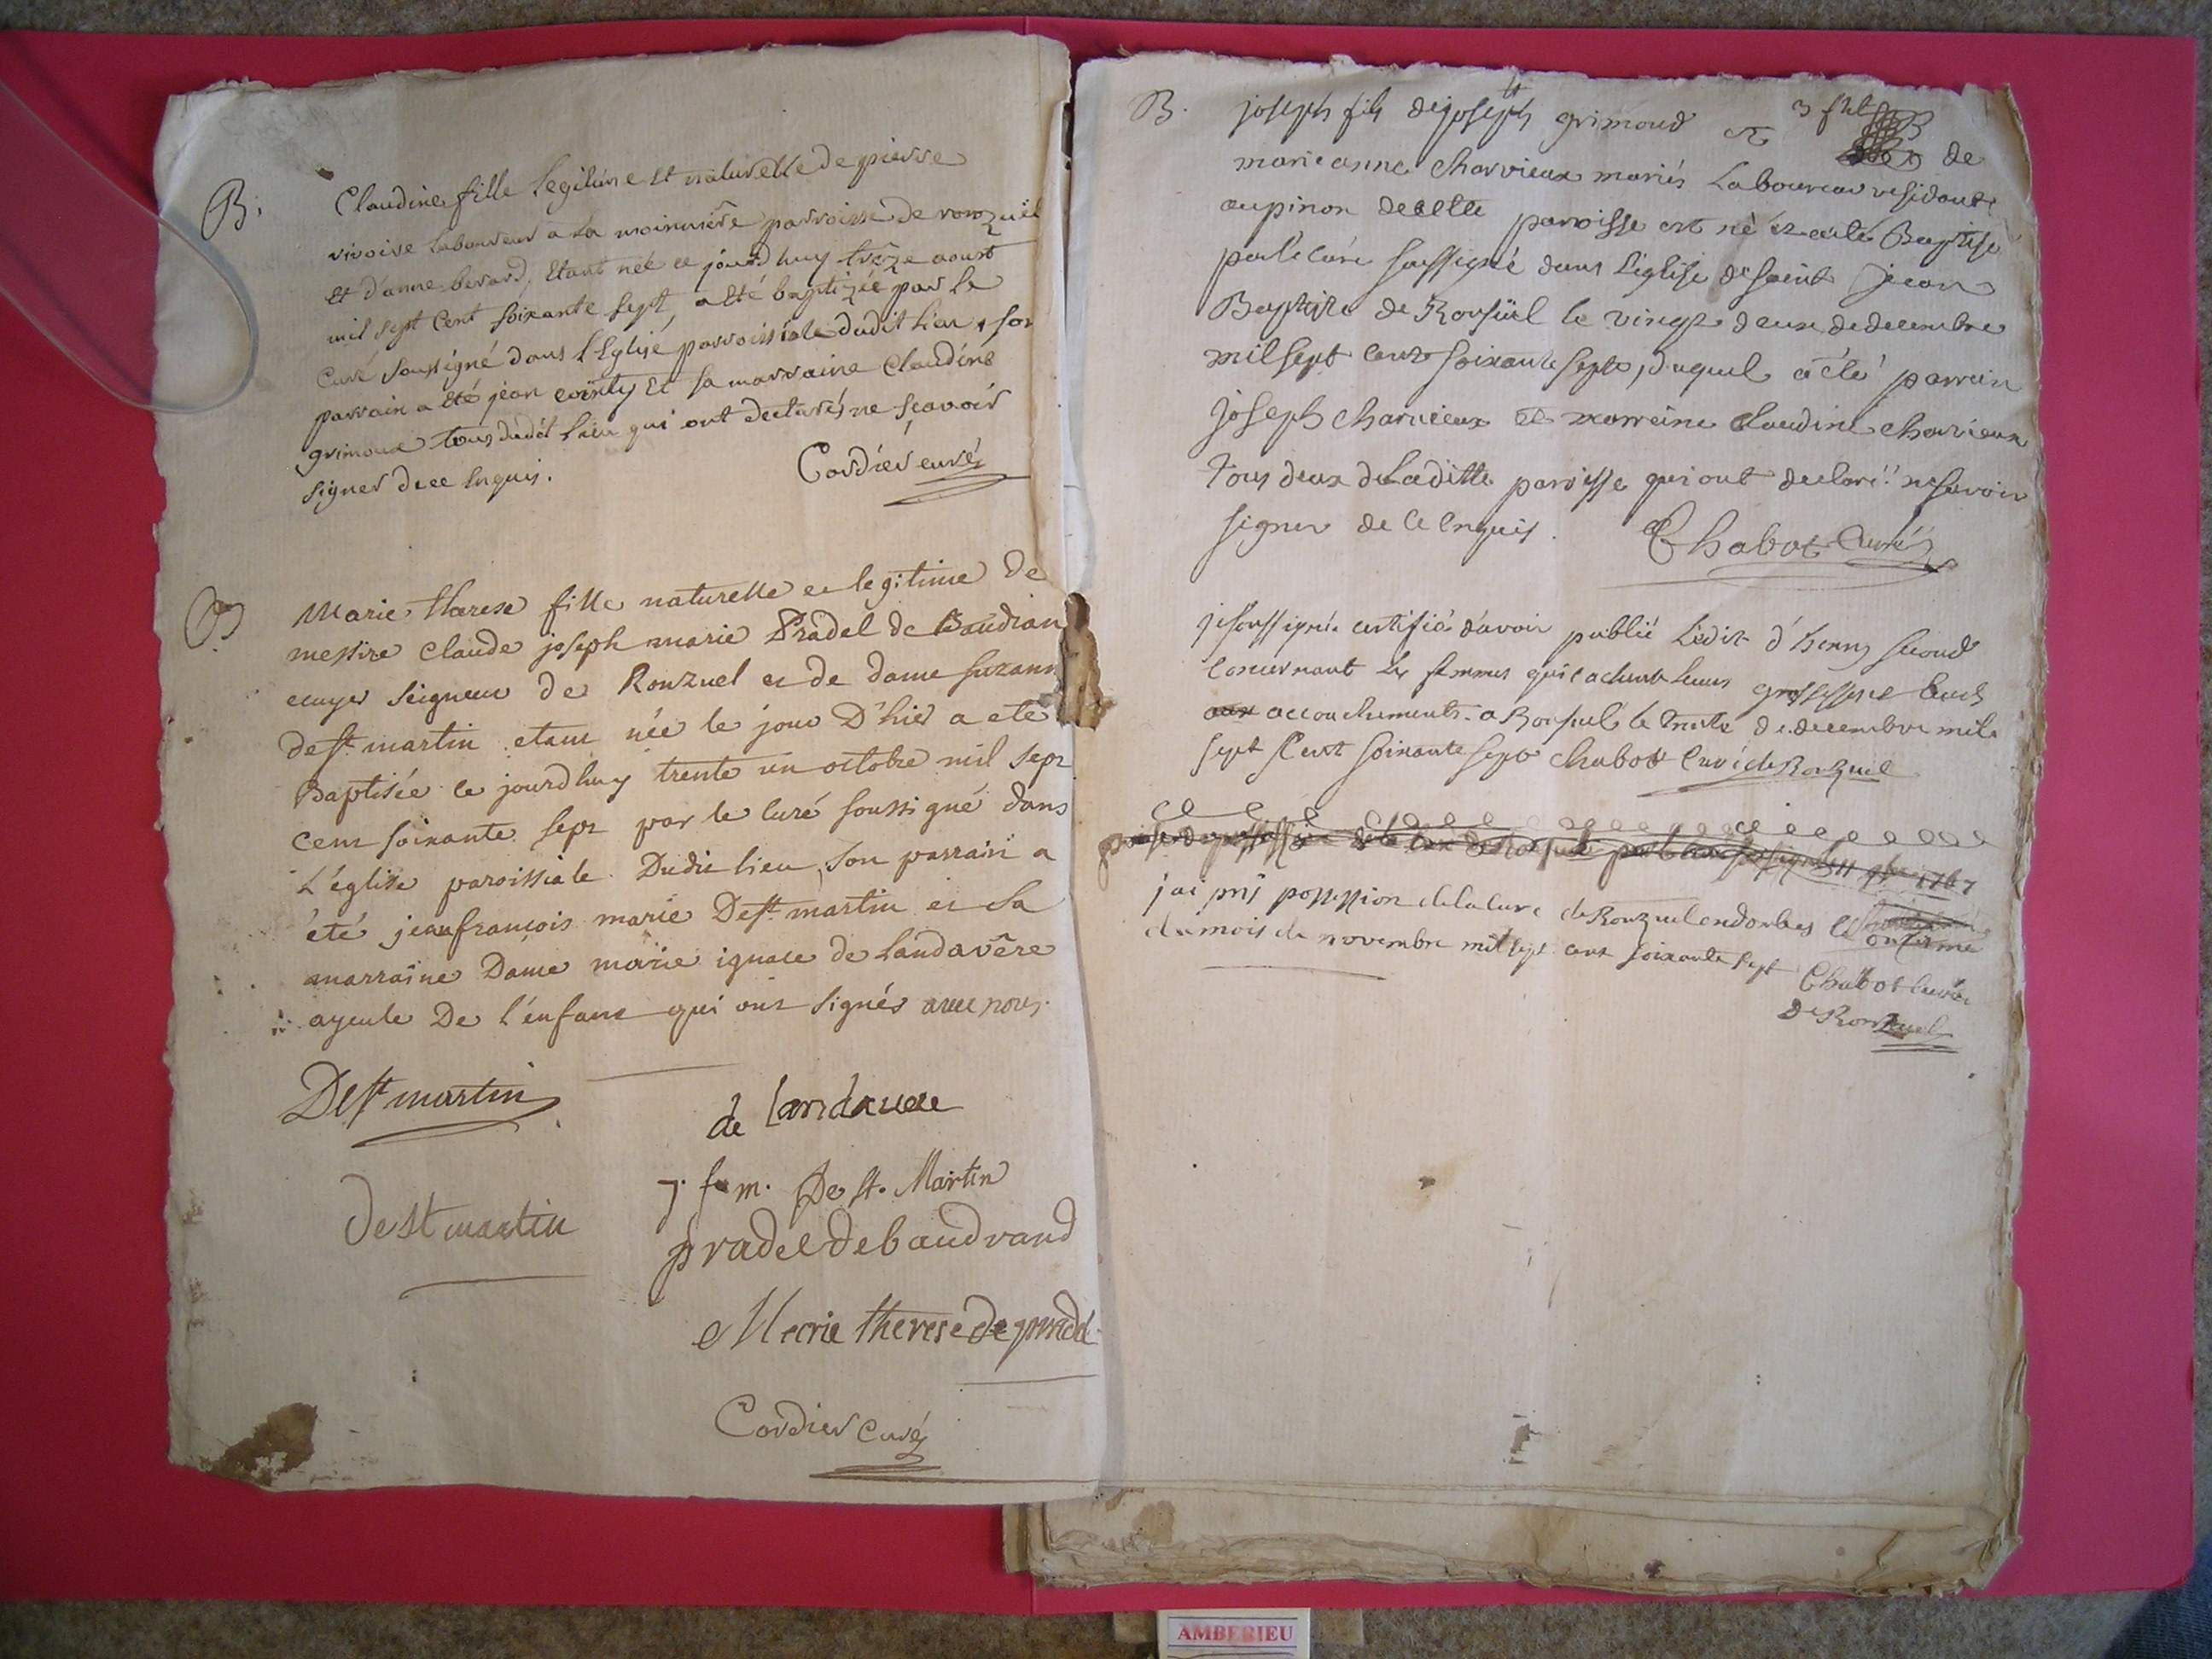 B.
Claudine fille legitime et naturelle de pierre
vivoire laboureur a la moinniere parroisse de ronzuel
et d'anne berard, etant née ce jourd'huy treze aoust
mil sept cent soixante sept, a été baptizée par le
curé soussigné dans l'Eglise parroissiale dudit lieu, son
parrain a été jean et sa marraine Claudine
grimoux tous dudit lieu qui ont declarés ne sçavoir
signer de ce enquis.
Cordier curé
B
Marie therese fille naturelle et legitime de
messire claude joseph marie Pradel de Baudran
ecuyer seigneur de Ronzuel et de dame suzann
de st martin etant née le jour D'hier a eté
Baptisée ce jourd'huy trente un octobre mil sept
cent soixante sept par le curé soussigné dans
L'église paroissiale Dudit lieu, son parrain a
été jean françois marie De st martin et sa
marraine Dame marie ignace de Landavêre
ayeule De l'enfant qui ont signés avec nous.
De st martin
de Landauere
J. f. m. De st. Martin
de st martin
pradel de baudrand
Marie therese de pradel
Cordier curé
B.
joseph fils de joseph grimoud et de
marie anne charvieux mariés Laboureur residants
au pinon de cette paroisse est né et a été Baptisé
par le curé soussigné dans L'église de saint jean
Baptiste de Ronsüel le vingt deux de decembre
mil sept cent soixante sept, duquel a été parrain
joseph charvieux et marreine Claudine charvieux
tous deux de Laditte paroisse qui ont declaré ne savoir
signer de ce enquis.
Chabot curé
je soussigné certifie d'avoir publié L'edit d'henry second
concernant les femmes qui cachent leurs grossesses et leurs
accouchements. a Ronsuel le trente de decembre mil
sept cent soixante sept chabot curé de Ronzuel
prise de possession de la cure de Ronsuel par le curé soussigné le 11 9bre 1767
j'ai pris possession de la cure de Ronzuel en dombes le onzieme
du mois de novembre mil sept cent soixante sept Chabot curé
de Ronzuel
AMBERIEU